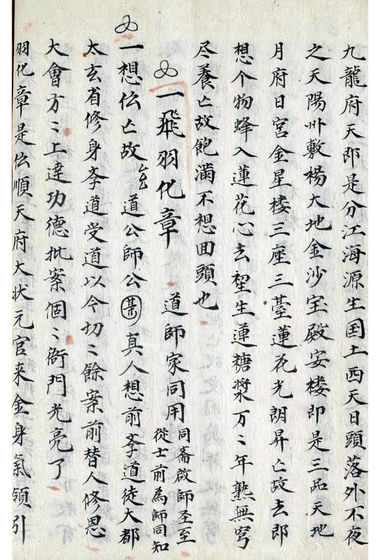 九龍府天郎是分江海源生国土西天日頭落外不夜
之天陽州敷楊大地金沙宝殿安楼即是三品天地
月府日宮金星楼三座三臺蓮花光朗昇亡故去即
想个物蜂入蓮花心去望生蓮糖漿万〻年熟無穹
尽养亡故飽滿不想回頭也
一飛羽化章 道師家同用 同斋啟師圣至
從士前為師同知
一想伝亡故 道公師公 真人想前孝道徒大都
太玄省修身孝道受道以今切〻餘案前替人修思
大會方〻上達功德批案個〻衙門光亮了
羽化章是伝順天府大状元官来金身氣領引